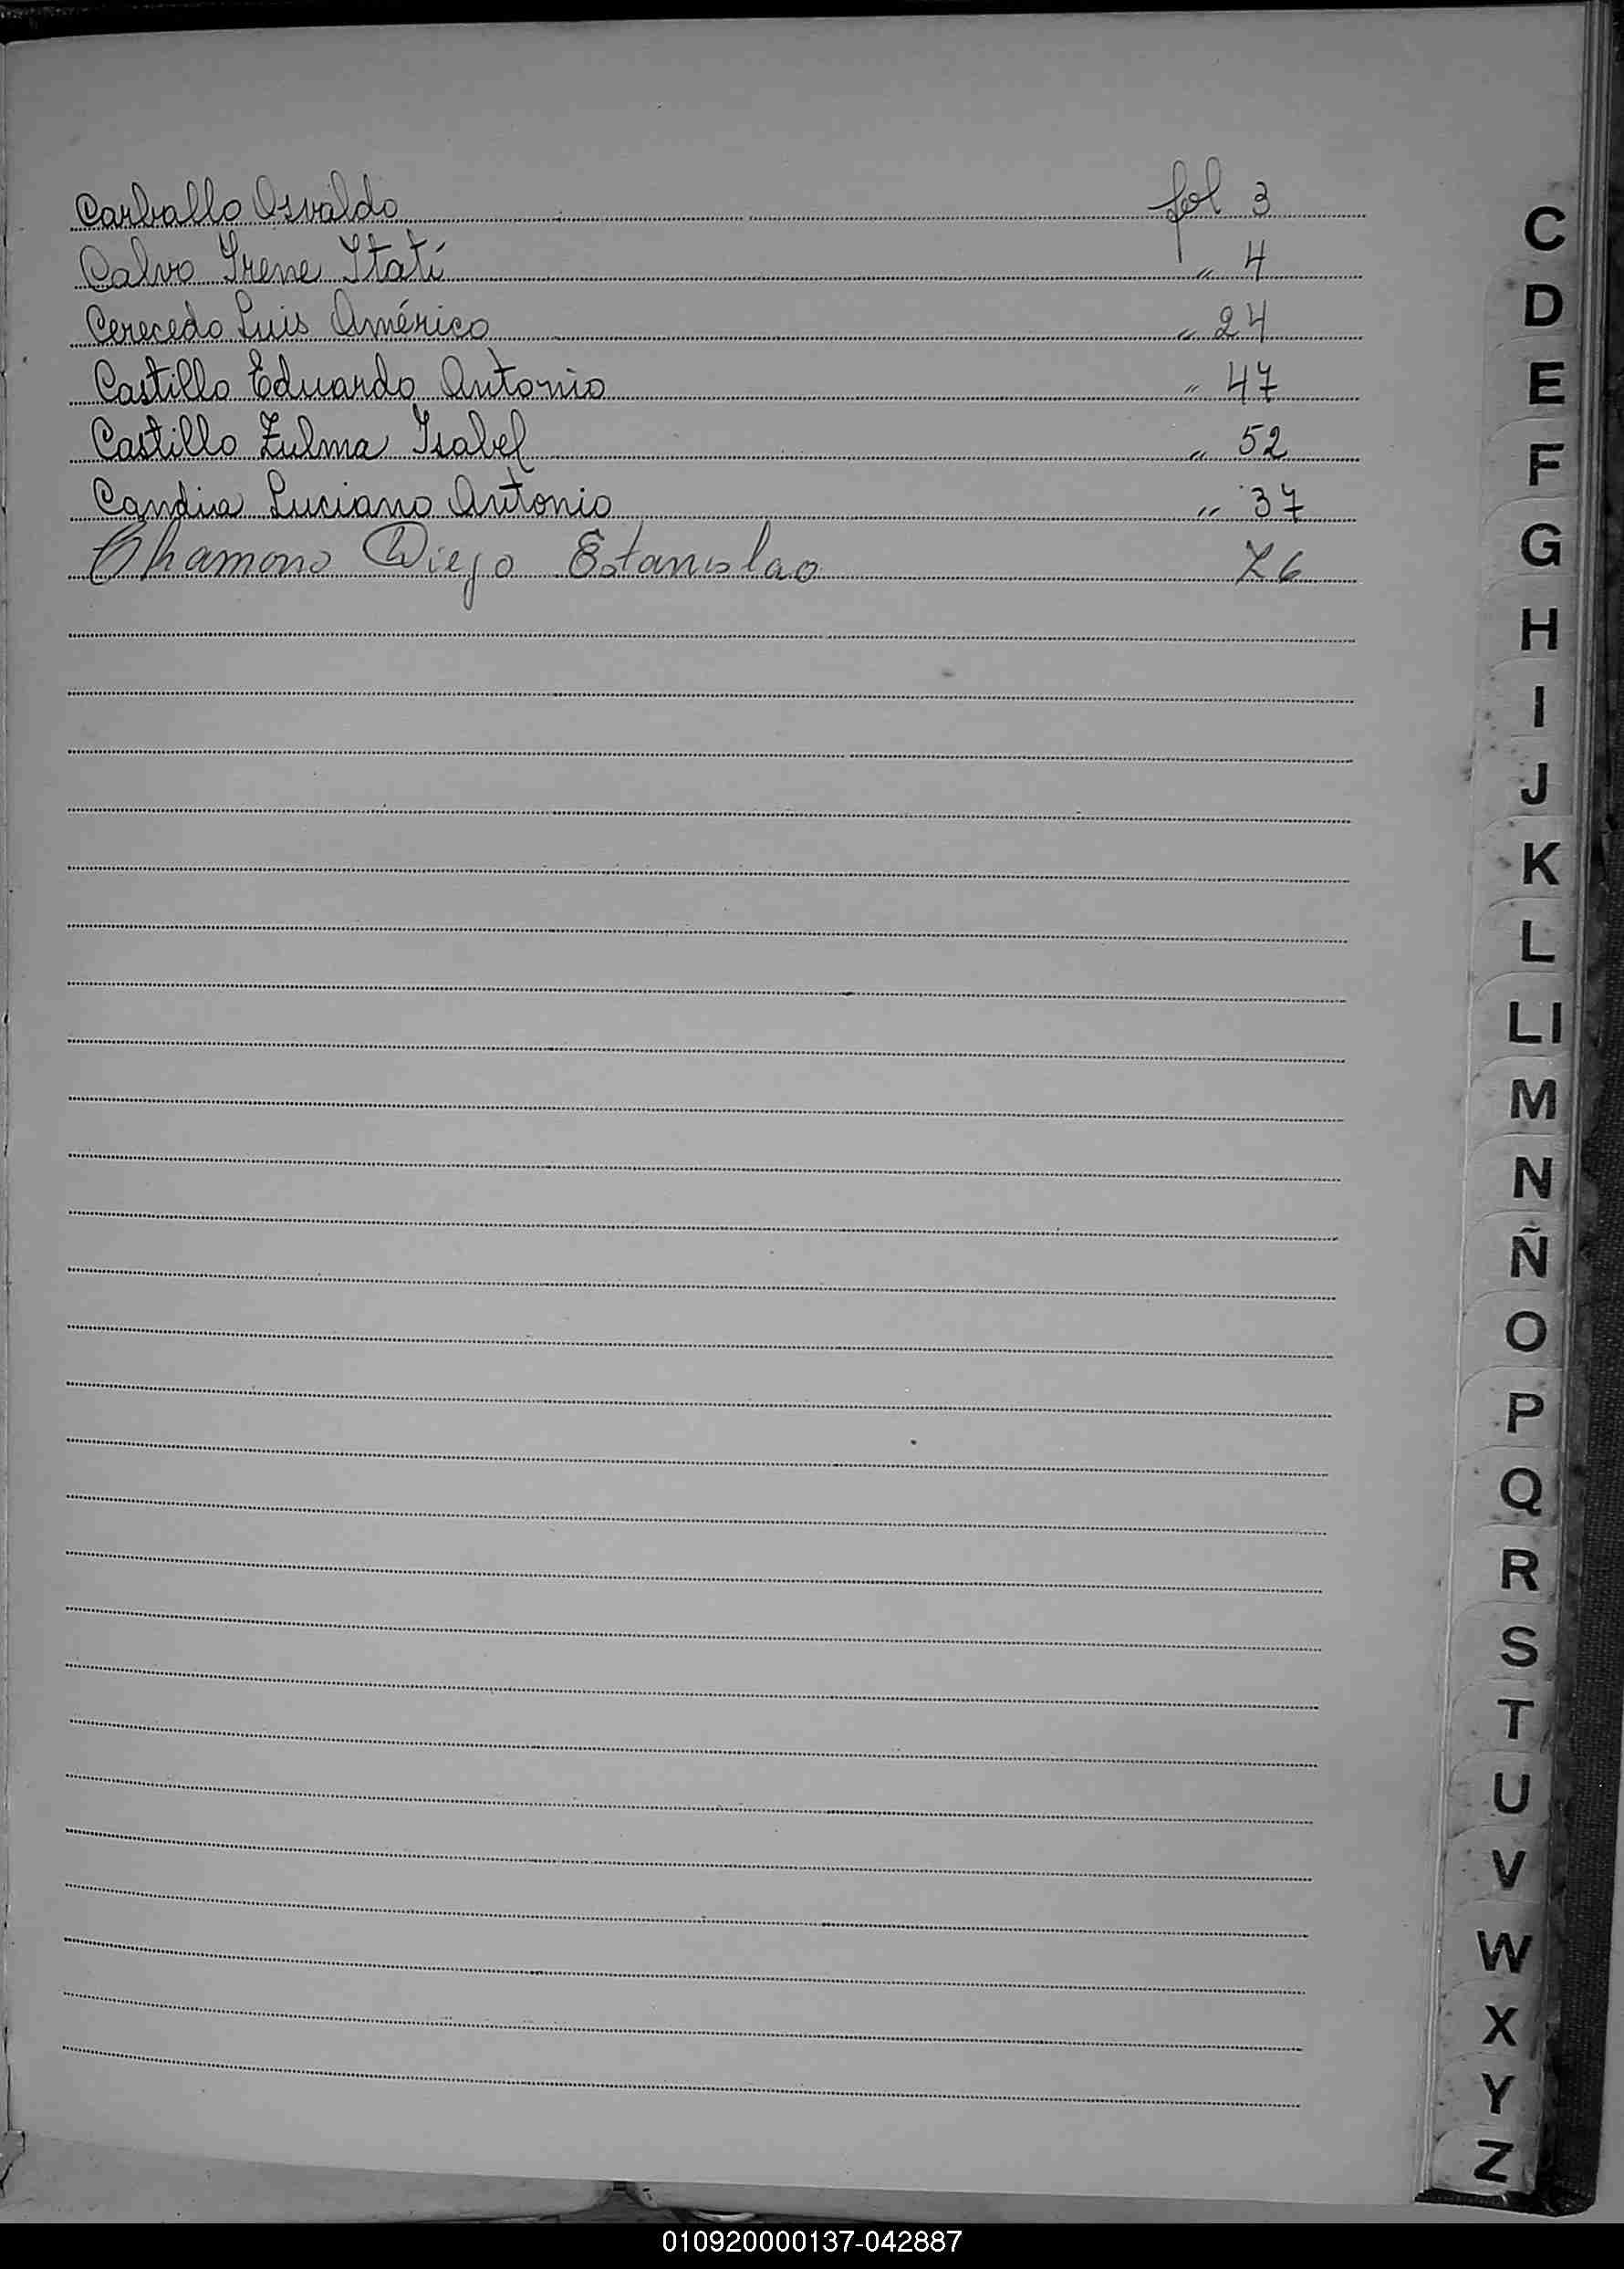 Carballo Osvaldo fol 3
Calvo Irene Itatí " 4
Cerecedo Luis Américo " 24
Castillo Eduardo Antonio " 47
Castillo Zulma Isabel " 52
Candia Luciano Antonio " 37
Diego Estanislao
C
D
E
F
G
H
I
J
K
L
Ll
M
N
Ñ
O
P
Q
R
S
T
U
V
W
X
Y
Z
010920000137-042887